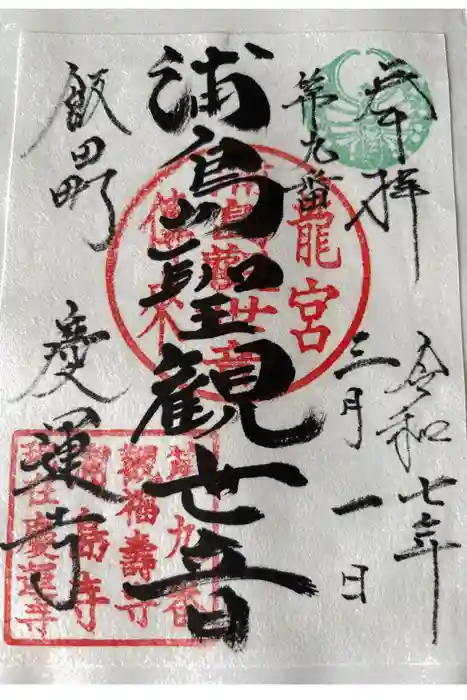 奉拝
第九番
令和七年
三月一日
浦島聖観世音
飯田町
慶運寺
龍宮
伝来
第九番
観福壽寺
浦島寺
慶運寺